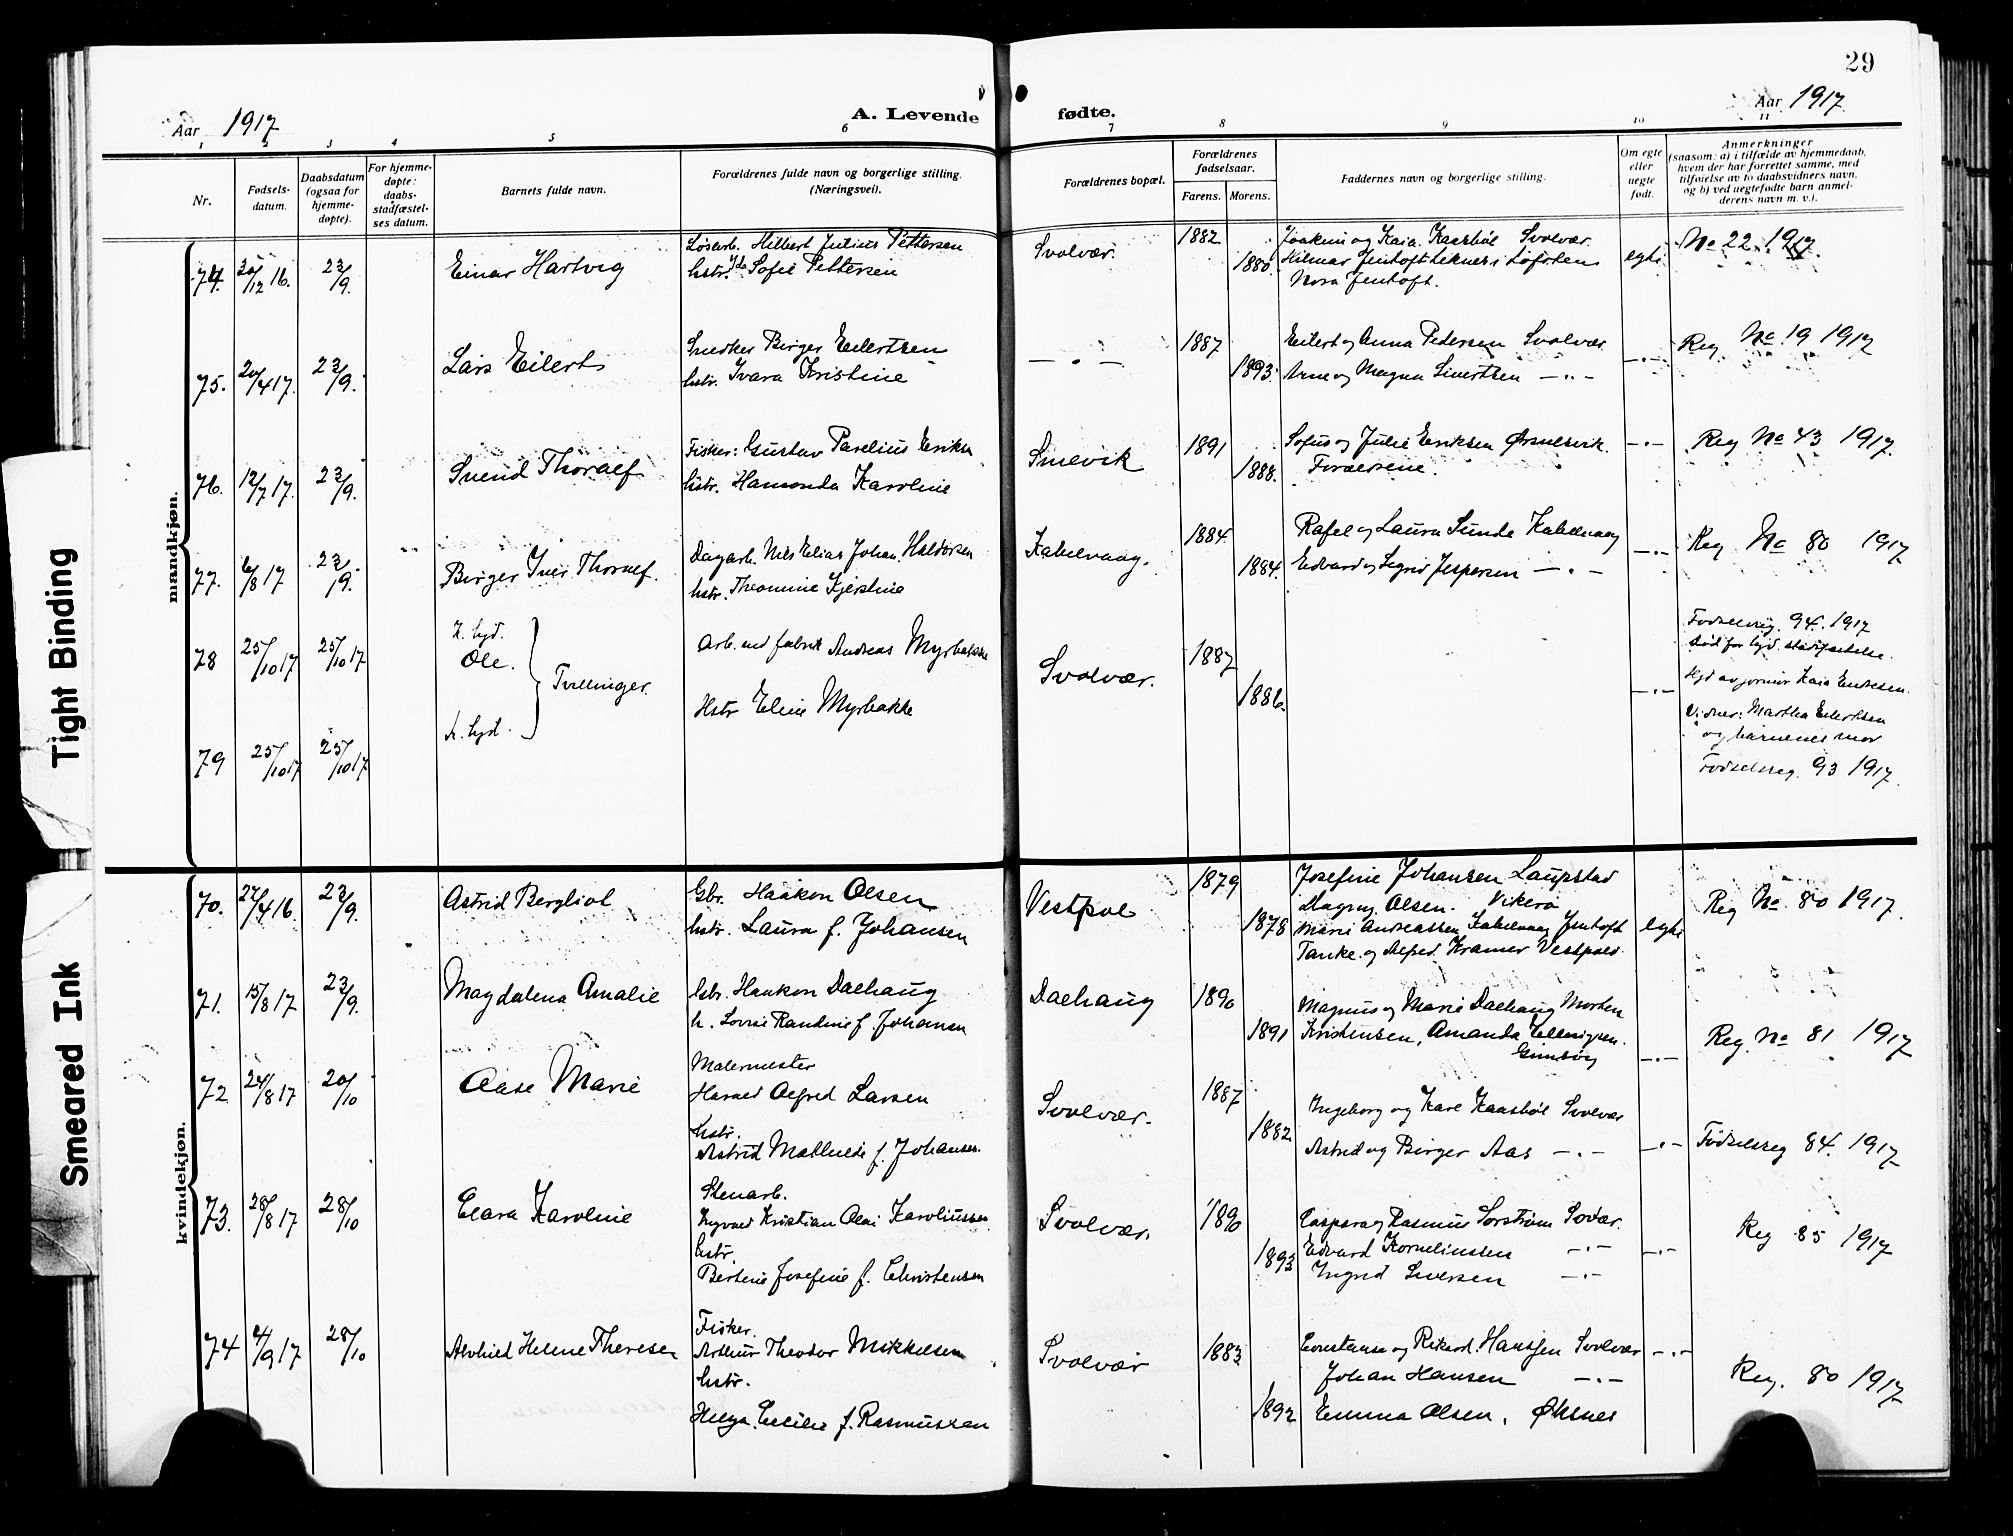 29
Aar 1917
A. Levende
fødte.
Aar 1917.
1 2 3 4 5 6 7 8 9 10 11
Nr.
Fødsels-
datum.
Daabsdatum
(ogsaa for
hjemme-
døpte).
For hjemme-
døpte:
daabs-
stadfæstel-
ses datum.
Barnets fulde navn.
Forældrenes fulde navn og borgerlige stilling.
(Næringsvei).
Forældrenes bopæl.
Forældrenes
fødselsaar.
Farens. Morens.
Faddernes navn og borgerlige stilling.
Om egte
eller
uegte
født.
Anmerkninger
(saasom: a) i tilfælde av hjemmedaab,
hvem der har forrettet samme, med
tilføielse av to daabsvidners navn,
og b) ved uegtefødte barn anmel-
derens navn m. v.).
mandkjøn.
74. 20/12 16. 23/9. Einar Hartvig
Løsarb. Hilbert Julius Pettersen
hstr. Ida Sofie Pettersen
Svolvær. 1882 1880.
Joakim og Kaia Kaasbøl Svolvær.
Hilmar Jentoft tekner i Lofoten
Nora Jentoft.
egte
No 22. 1917
75. 20/4 17. 23/9. Lars Eilert
Snedker Birger Eilertsen
hstr. Ivara Kristine
— " — 1887 1893.
Eilert og Anna Pedersen Svolvær
Arne og Magna Sivertsen — " —
— " —
Reg. No 19 1917
76. 12/7 17. 23/9. Svend Thoralf
Fisker: Gustav Parelius Eriksen
hstr. Hamonda Karoline
Smevik 1891 1888.
Sofus og Julie Eriksen Ørsnesvik.
Forældrene.
— " —
Reg No 43 1917.
77. 6/8 17 23/9. Birger Iver Thoralf.
Dagarb. Nils Elias Johan Haldorsen
hstr. Theomine Kjerstine
Kabelvaag. 1884 1884.
Rafel og Laura Sunde Kabelvaag
Edvard og Sigrid Jespersen — " —
— " —
Reg No 80 1917
78 25/10 17 25/10 17
h. Gjd.
Ole.
Tvillinger.
Arb. ved fabrik Andreas Myrbakke
Hstr Eline Myrbakke
Svolvær. 1887 1886.
— " —
Fødselsreg. 94. 1917
død før Gjd. stadfæstelse.
Hjd av jormor Kaia Endresen.
Vidner: Martha Eilertsen
og barnenes mor
79 25/10 17 25/10 17
h. Gjd.
Fødselsreg. 93 1917.
kvindekjøn.
70. 27/4 16. 23/9. Astrid Bergliot
Gbr. Haakon Olsen
hstr. Laura f. Johansen
Vestpol 1879 1878
Josefine Johansen Laupstad
Dagny Olsen. Vikerø
Marie Andreassen Kabelvaag Jentoft
Tanke. og Alfred Kramer Vestpold.
egte
Reg No 80 1917.
71. 15/8 17 23/9. Magdalena Amalie
Gbr. Haakon Dalhaug
h. Lovise Randine f. Johansen
Dalhaug 1890 1891
Magnus og Marie Dalhaug Morten
Kristensen, Amanda Ellingsen.
Gimsøy
— " —
Reg. No 81 1917
72 24/8 17 20/10 Aase Marie
Malermester
Harald Alfred Larsen
hstr.
Astrid Mathilde f. Johansen.
Svolvær. 1887 1882
Ingeborg og Kare Kaasbøl Svolvær
Astrid og Birger Aas — " —
— " —
Fødselsreg 84. 1917
73. 28/8 17 28/10 Clara Karoline
Stenarb.
Kristian Olai Karoliussen
hstr.
Bertine Josefine f. Christensen
Svolvær. 1890 1893
Caspara og Rasmus Sorstrøm Svolvær.
Edvard Korneliussen — " —
Ingrid Iversen — " —
— " —
Reg 85 1917
74 4/9 17 28/10 Alvhild Helene Therese
Fisker.
Arthur Theodor Mikkelsen
hstr.
Helga Cecilie f. Rasmussen
Svolvær 1883 1892
Constanse og Rikard. Hanssen Svolvær
Johan Hansen — " —
Emma Olsen, Øksnes
— " —
Reg. 80 1917
Tight Binding
Smeared Ink